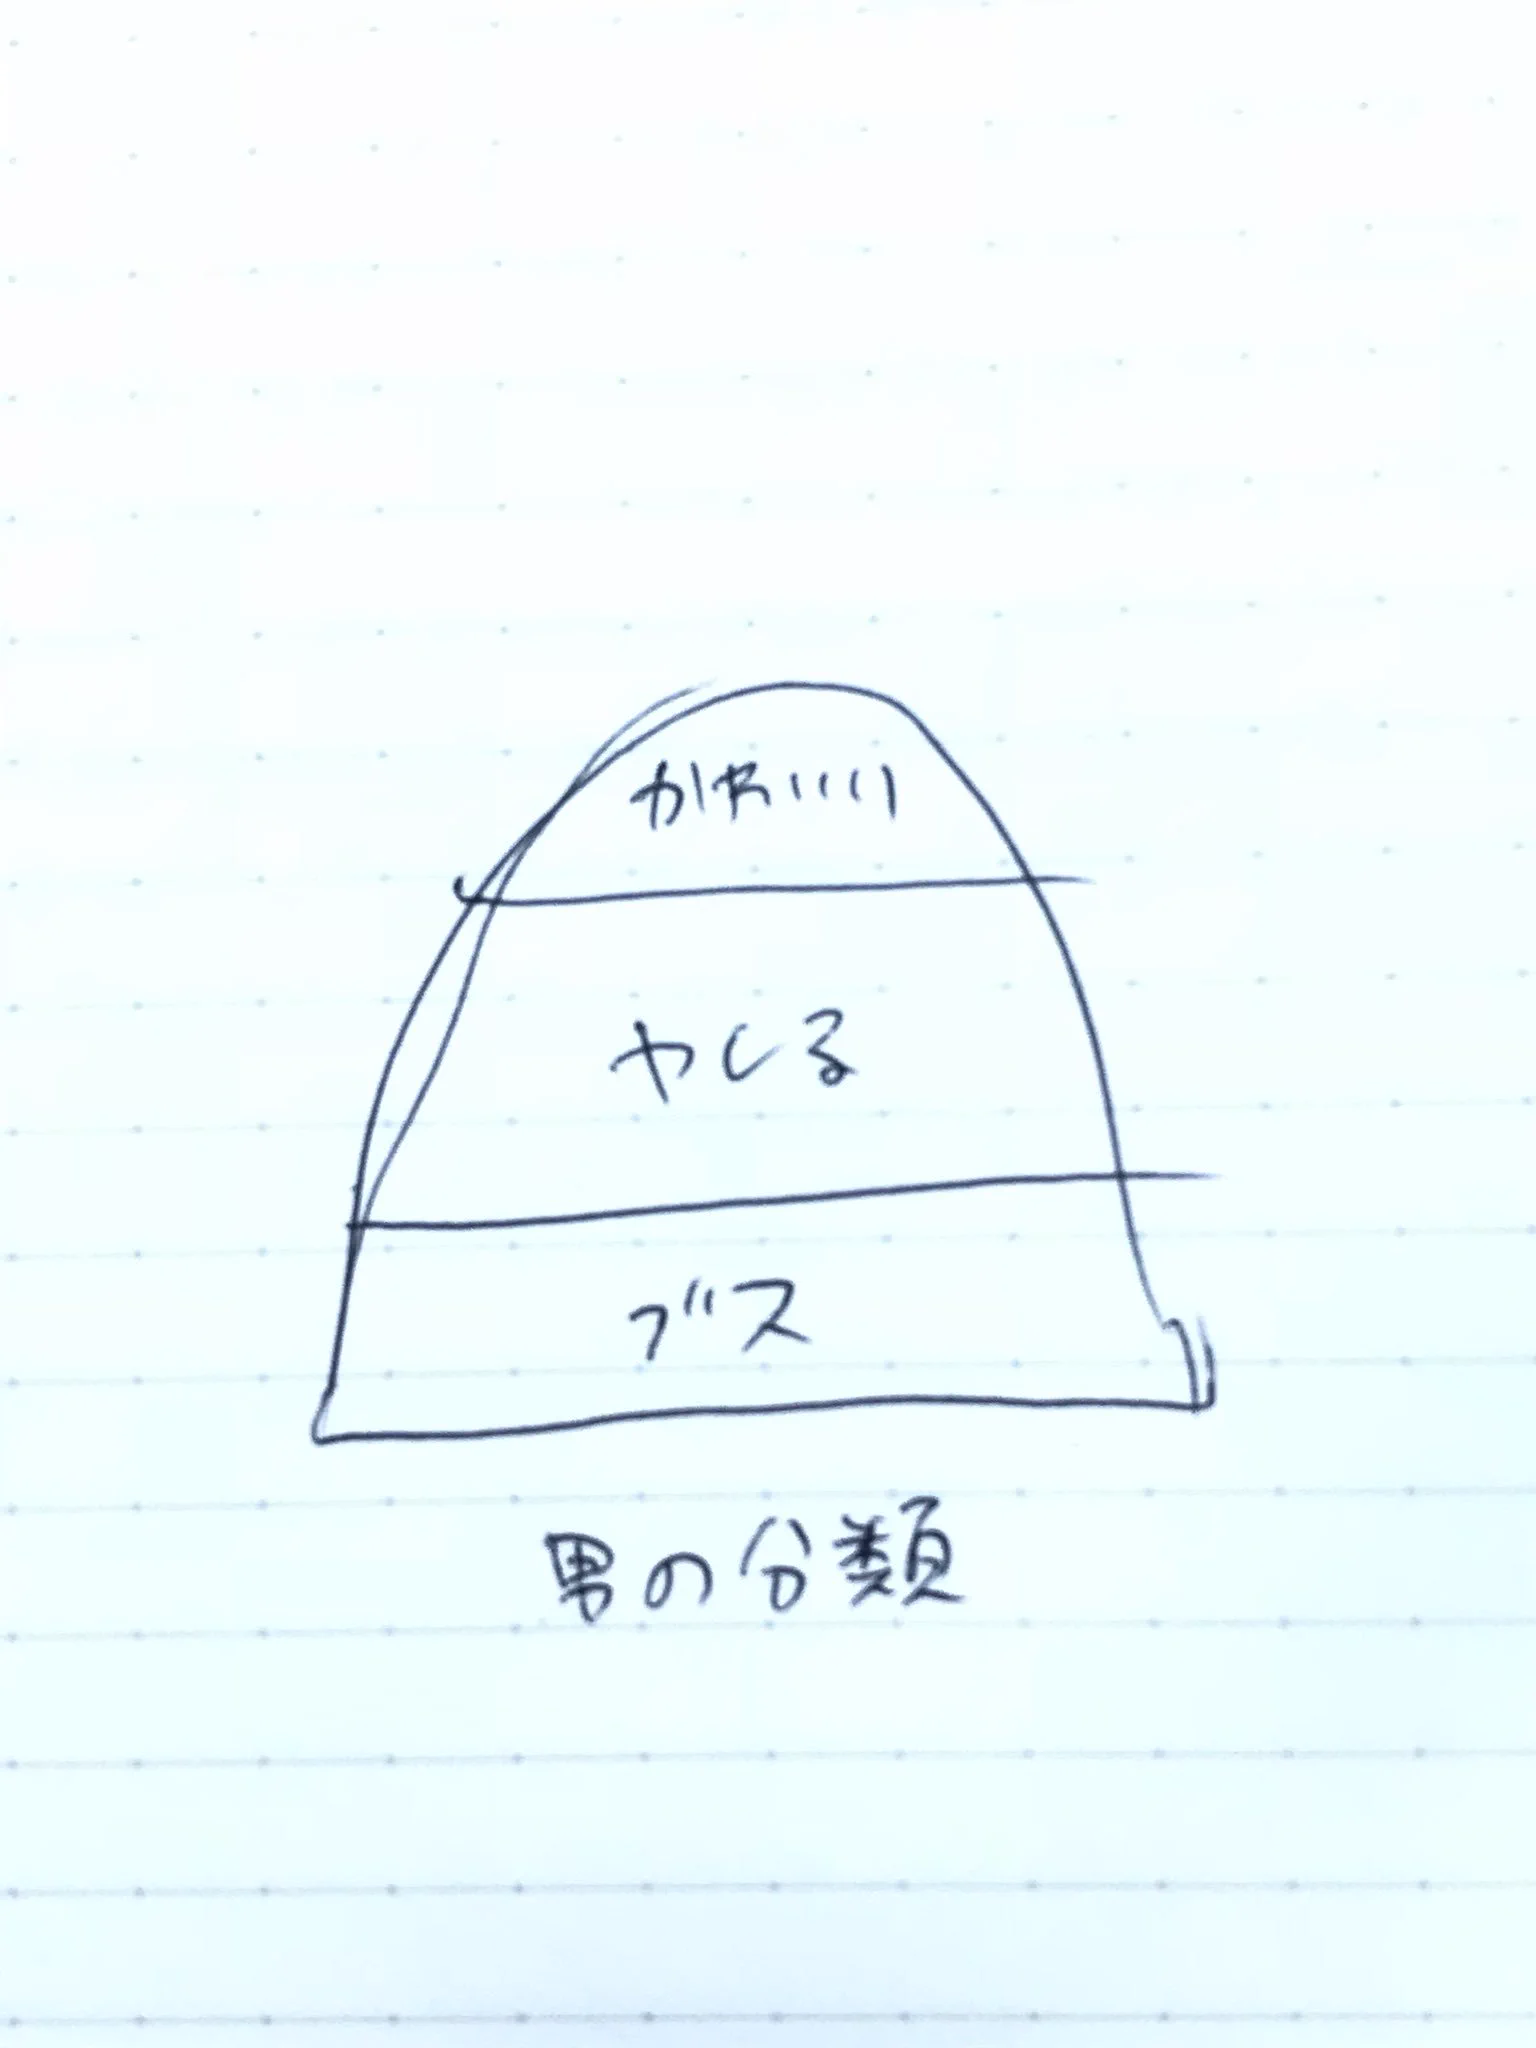 かわいい
やしる
ブス
男の分類